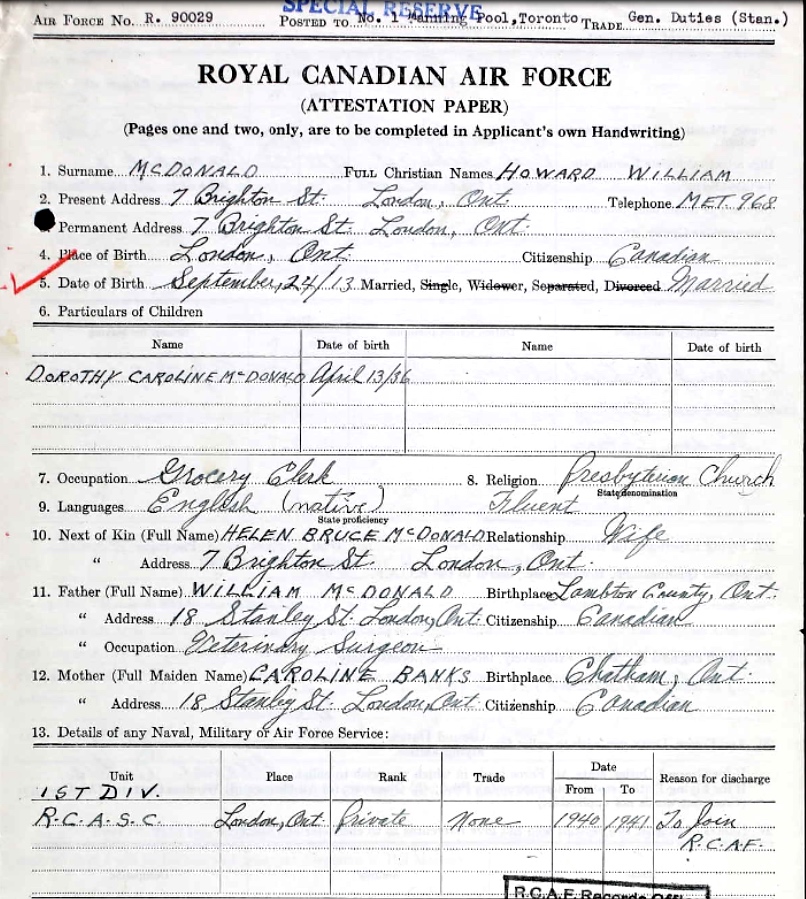 SPECIAL RESERVE
AIR FORCE No. R. 90029 POSTED TO No. 1 Manning Pool, Toronto TRADE Gen. Duties (Stan.)
ROYAL CANADIAN AIR FORCE
(ATTESTATION PAPER)
(Pages one and two, only, are to be completed in Applicant's own Handwriting)
1. Surname McDONALD FULL Christian Names HOWARD WILLIAM
2. Present Address 7 Brighton St. London, Ont. Telephone MET. 968
Permanent Address 7 Brighton St. London, Ont.
4. Place of Birth London, Ont. Citizenship Canadian
5. Date of Birth September, 24/13 Married, Single, Widower, Separated, Divorced Married
6. Particulars of Children
Name Date of birth Name Date of birth
DOROTHY CAROLINE McDONALD April 13/36
7. Occupation Grocery Clerk 8. Religion Presbyterian Church
State denomination
9. Languages English (native) Fluent
State proficiency
10. Next of Kin (Full Name) HELEN BRUCE McDONALD Relationship Wife
" Address 7 Brighton St. London, Ont.
11. Father (Full Name) WILLIAM McDONALD Birthplace Lambton County, Ont.
" Address 18 Stanley St. London, Ont. Citizenship Canadian
" Occupation Veterinary Surgeon
12. Mother (Full Maiden Name) CAROLINE BANKS Birthplace Chatham, Ont.
" Address 18 Stanley St. London, Ont Citizenship Canadian
13. Details of any Naval, Military or Air Force Service:
Unit Place Rank Trade Date Reason for discharge
From To
1ST DIV.
R.C.A.S.C. London, Ont. Private None 1940 1941 To Join
R.C.A.F.
R.C.A.F. Records Office